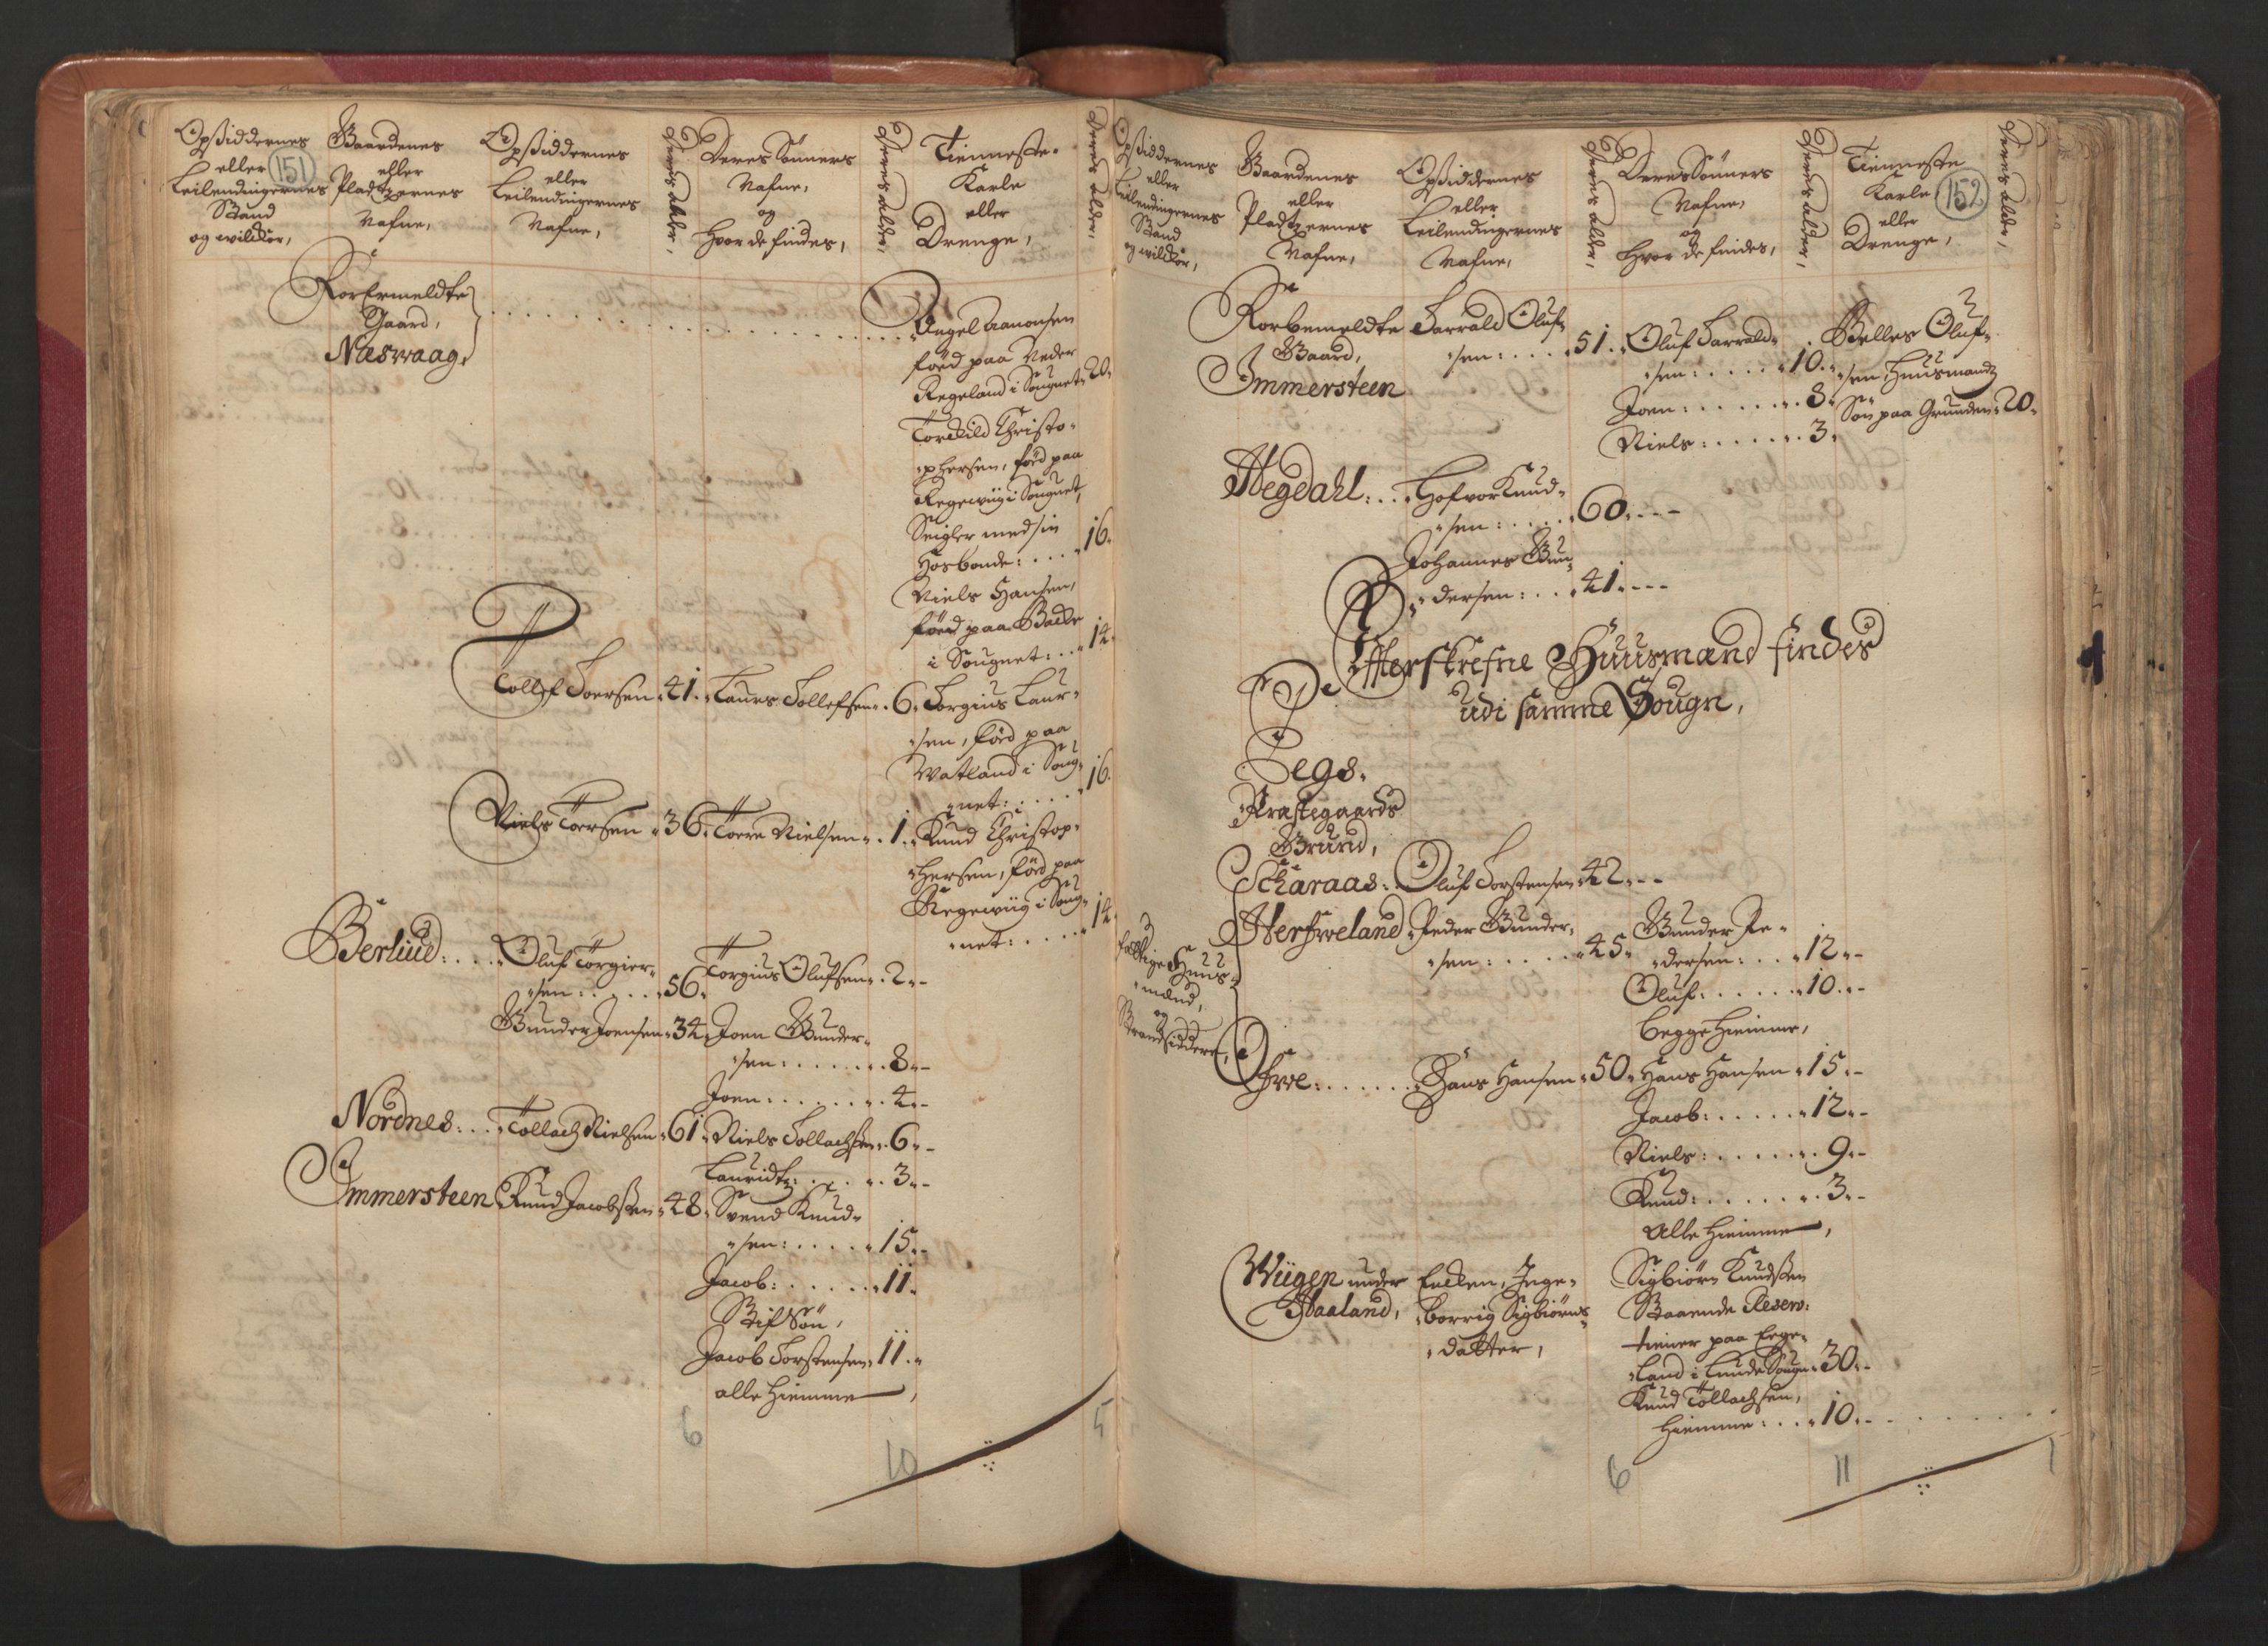 151
Opsiddernes
eller
Leilendingernes
Stand
og wilckor,
Gaardenes
eller
Pladtzernes
Nafne,
Opsiddernes
eller
Leilendingernes
Nafne,
Deres alder,
Deres Sønners
Nafne,
og
Hvor de findes,
Deres alder,
Tienneste-
Karle
eller
Drenge,
Deres alder,
Forermeldte
Gaard,
Næswaag,
Aanonsen
föed paa Neder
Regeland i Sougnet 20
Torckild Christo-
phersen, föed paa
Regewiig i Sougnet,
Seigler med sin
Hosbonde: . . . 16.
Niels Hansen,
föed paa Backe
i Sougnet: . . 14.
Tollef Toersen 41. Laurs Tollefsen . 6. Torgius Laur-
sen, föed paa
Watland i Soug-
net: . . . . 16.
Niels Toersen 36. Toere Nielsen . 1. Knud Christop-
hersen, föed paa
Regewiig i Soug-
net: . . . . 14
Berlüd: . . . Oluf Torgier-
sen: . . . . 56. Torgius Olufsen . 2.
Gunder Joensen 34. Joen Gunder-
sen: . . . . . 8.
Joen: . . . . . 4.
Nordnes: . . . Tollach Nielsen 61. Niels Tollachsen . 6.
Lauridtz: . . . 3.
Immersteen Knud Jacobsen 48. Svend Knud-
sen: . . . . 15.
Jacob: . . . . . 11.
Stif Sön,
Jacob Torstensen 11.
alle hiemme,
6
10
5
152
Opsiddernes
eller
Leilendingernes
Stand
og wilckor,
Gaardenes
eller
Pladtzernes
Nafne,
Opsiddernes
eller
Leilendingernes
Nafne,
Deres alder,
Deres Sönners
Nafne,
og
Hvor de findes,
Deres alder,
Tienneste
Karle
eller
Drenge,
Deres alder,
Forbemeldte
Gaard,
Immersteen
Tarrald Oluf-
sen: . . . . 51.
Oluf Tarrald-
sen: . . . . . 10.
Joen: . . . . . 8.
Niels: . . . . . 3.
Oluf-
sen, Huusmandtz
Sön paa Grunden 20.
Hegdahl: . . . Knud-
sen: . . . . 60.
Johannes Gun-
dersen: . . . 41.
Effterskrefne Hüüsmænd findes
udi samme Sougn,
Præstegaards
Grund,
Scharaas: . Oluf Torstensen 42.
Peder Gunder-
sen: . . . . 45.
Gunder Pe-
dersen: . . . 12.
Oluf: . . . . . 10.
begge hiemme,
fattige Huus-
mænd,
og
Strandsiddere,
Hans Hansen 50. Hans Hansen 15.
Jacob: . . . . . 12.
Niels: . . . . . 9.
Knud: . . . . . 3.
Alle hiemme,
Wiigen under
Haaland,
Encken, Inge-
borrig Sigbiörns
datter,
Sigbiörn Knudsen
Staaende Reserv:
tiener paa Ege-
land i Lunde Sougn 30.
Knud Tollachsen,
hiemme: . . . 10.
6
11
1